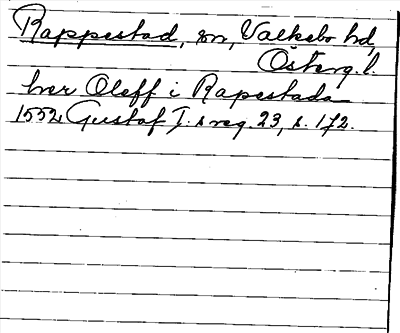 Rappestad, sn, Valkebo hd,
Österg. l.
her Oleff i Rapestada
1552 Gustaf I:s reg. 23, s. 172.